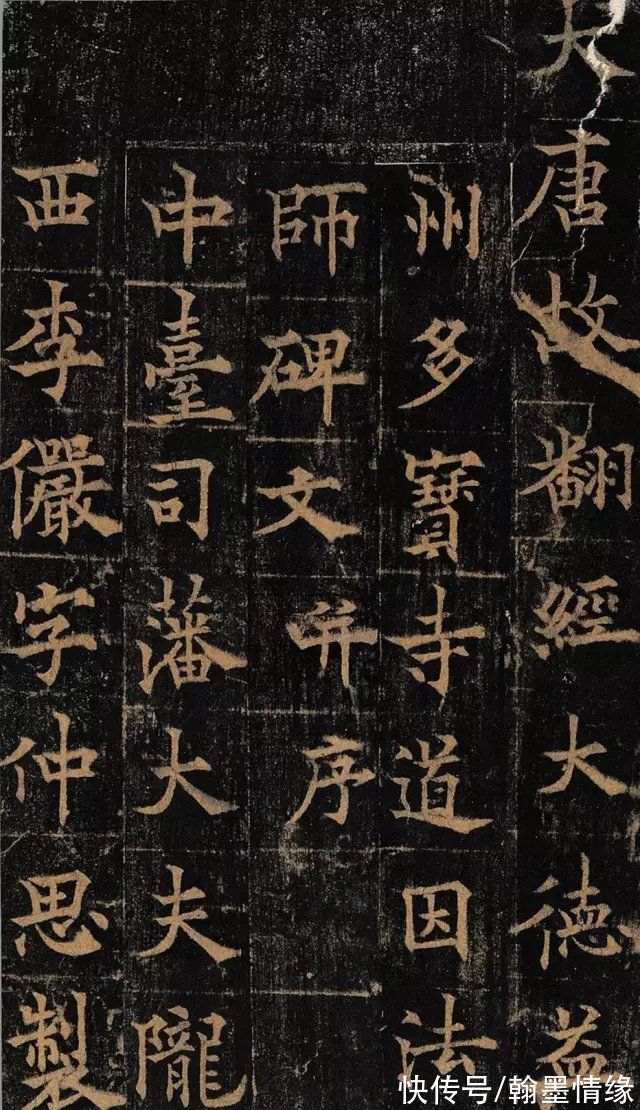 大唐故翻經大德益
州多寶寺道因法
師碑文并序
中臺司藩大夫隴
西李儼字仲思製
快传号/翰墨情缘